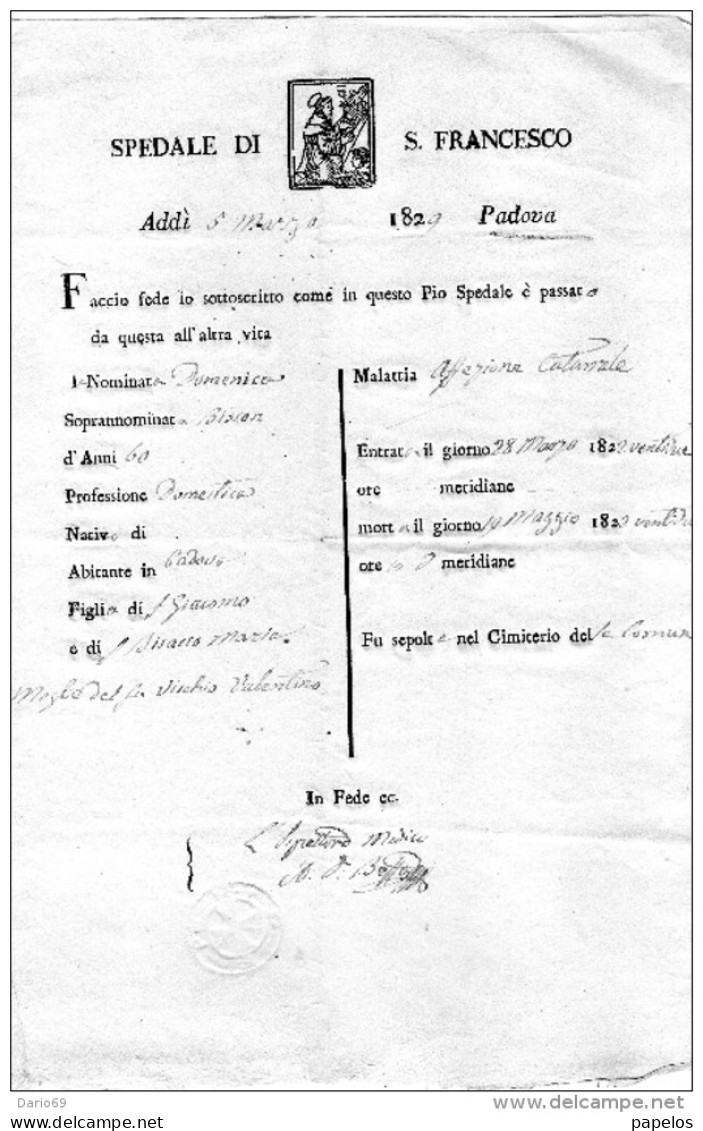 SPEDALE DI S. FRANCESCO
Addì 5 Marzo 1829 Padova
Faccio fede io sottoscritto come in questo Pio Spedale è passata
da questa all'altra vita
la Nominata Domenica
Soprannominata
d'Anni 60
Professione Domestica
Nativa di
Abitante in Padova
Figlia di f Giacomo
e di f Maria
Moglie del fu Valentino
Malattia Affezione Catarrale
Entrata il giorno 28 Marzo 1822 ventidue
ore meridiane
morta il giorno 19 Maggio 1822 ventidu
ore meridiane
Fu sepolta nel Cimiterio della Comun
In Fede ec.
L'Ispettore Medico
Dario69
delcampe.net
papelos